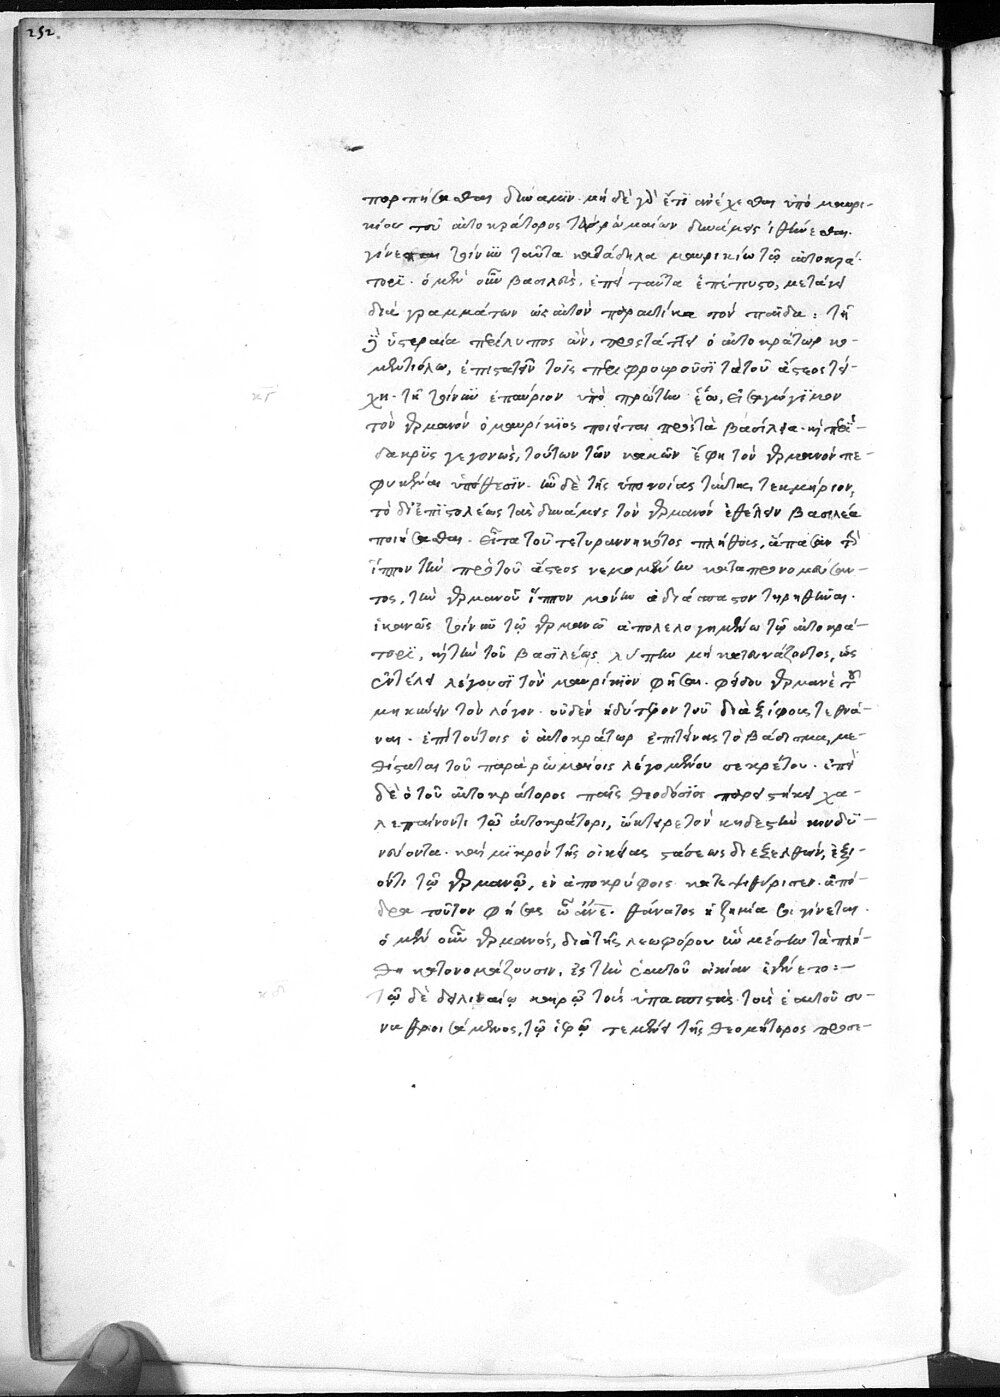 252
πορπήσασθαι δύναμιν. μὴ δὲ γὰρ ἔτι ἀνέχεσθαι ὑπὸ μαυρι-
κίου τοῦ αὐτοκράτορος τὰς ῥωμαίων δυνάμεις ἰθύνεσθαι.
γίνεται τοίνυν ταῦτα κατάδηλα μαυρικίω τῶ αὐτοκρά-
τορϊ. ὁ μὲν οὖν βασιλεὺς, ἐπεὶ ταῦτα ἐπέπυστο, μετάγει
διὰ γραμμάτων ὡς αὐτὸν παραυτίκα τὸν παῖδα: τῆ
ὑστεραία περίλυπος ὢν, προστάττει ὁ αὐτοκράτωρ κο-
μεντιόλω, ἐπιστατεῖν τοῖς περιφρουροῦσι τὰ τοῦ ἄστεος τεί-
χη. τῆ τοίνυν ἐπαύριον ὑπὸ πρώτην ἕω, εἰσαγώγϊμον
τὸν γερμανὸν ὁ μαυρίκιος ποιεῖται πρὸς τὰ βασίλεια. καὶ περϊ-
δακρϋς γεγονὼς, τούτων τῶν κακῶν ἔφη τὸν γερμανὸν πε-
φυκέναι ὑπόθεσϊν. ἦν δὲ τῆς ὑπονοίας ταύτης τεκμήριον,
τὸ δι' ἐπιστολέως τὰς δυνάμεις τὸν γερμανὸν ἐθέλειν βασιλέα
ποιήσασθαι. εἶτα τοῦ τετυραννηκότος πλήθους, ἅπασαν τὴν
ἵππον τὴν πρὸ τοῦ ἄστεος νεμομένην καταπρονομεύσαν-
τος, τὴν γερμανοῦ ἵππον μόνην ἀδιάσπαστον τηρηθῆναι.
ἱκανῶς τοίνυν τῶ γερμανῶ ἀπολελογημένω τῶ αὐτοκρά-
τορϊ, καὶ τὴν τοῦ βασιλέως λύπην μὴ κατευνάζοντος, ὡς
ἐντελεῖ λέγουσι τὸν μαυρίκιον φῆσαι. φείδου γερμανὲ τοῦ
μηκύνειν τὸν λόγον. οὐδὲν ἡδύτερον τοῦ διὰ ξίφους τεθνά-
ναι. ἐπὶ τούτοις ὁ αὐτοκράτωρ ἐπιτείνας τὸ βάδισμα, με-
θίσταται τοῦ παρὰ ῥωμαίοις λεγομένου σεκρέτου. ἐπεὶ
δὲ ὁ τοῦ αὐτοκράτορος παῖς θεοδόσϊος παρειστήκει χα-
λεπαίνοντι τῶ αὐτοκράτορι, ὤκτειρε τὸν κηδεστὴν κινδϋ-
νεύοντα. καὶ μικρὸν τῆς οἰκείας στάσεως διεξελθὼν, ἐξι-
όντι τῶ γερμανῶ, ἐν ἀποκρύφοις κατεψιθύρισεν. ἀπό-
δρα τοῦτον φήσας ὦ ἄνε. θάνατος ἡ ζημία σοι γίνεται.
ὁ μὲν οὖν γερμανὸς, διὰ τῆς λεωφόρου ἣν μέσην τὰ πλή-
θη κατονομάζουσιν, ἐς τὴν ἑαυτοῦ οἰκίαν ἐγένετο:—
τῶ δὲ δειλιναίω καιρῶ τοὺς ὑπασπιστὰς τοὺς ἑαυτοῦ συ-
ναθροισάμενος, τῶ ἱερῶ τεμένει τῆς θεομήτορος προσε-